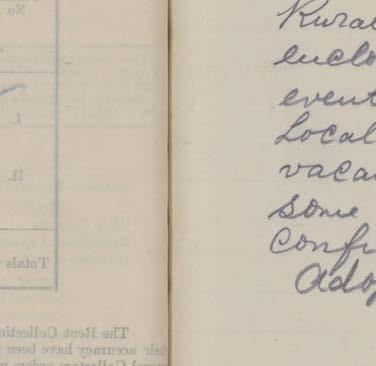 No.
I.
II.
Totals
The Rent Collectio
heir accuracy have been
Rural
enclo
event
Local
vaca
some
confi
Adop